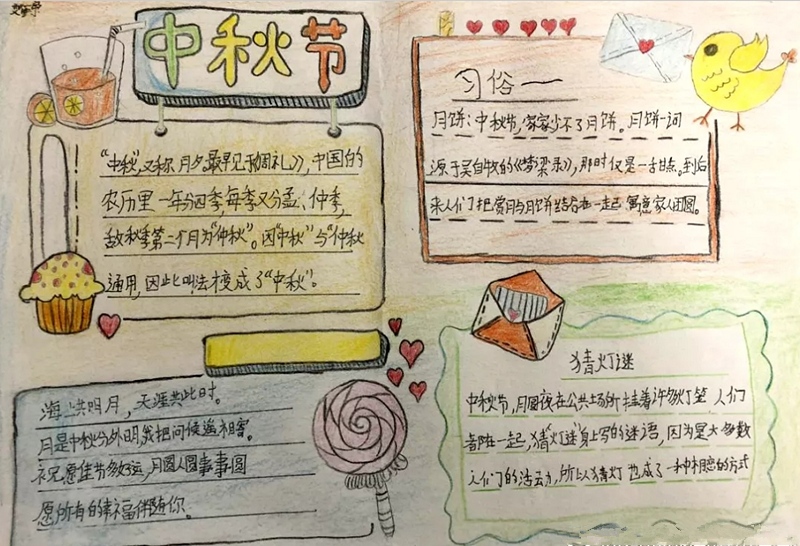 中秋节
"中秋"，又称月夕，最早见于《周礼》，中国的
农历里一年分四季，每季又分孟、仲季，
故秋季第二个月为"仲秋"。因"中秋"与"仲秋
通用，因此叫法变成了"中秋"。
海上共明月，天涯共此时。
月是中秋分外明，我把问候遥相寄。
祝愿佳节多好运，月圆人圆事事圆
愿所有的幸福伴随你。
习俗一
月饼：中秋节，家家少不了月饼。月饼一词
源于吴自牧的《梦梁录》，那时仅是一古甘点。到后
来人们把赏月与月饼结合在一起，寓意家人团圆。
猜灯谜
中秋节，月圆夜在公共场所挂着许多灯笼，人们
都在一起，猜"灯谜"身上写的谜语，因为是大多数
人们的活动，所以猜灯也成了一种相恋的方式